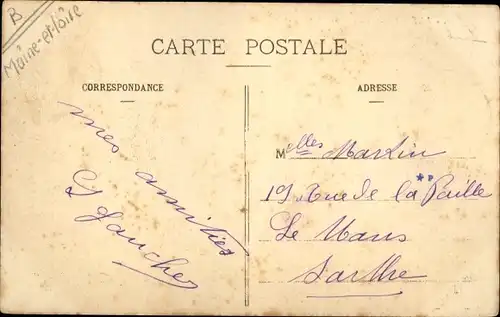 B
Maine-et-Loire
CARTE POSTALE
CORRESPONDANCE
mes amitiés
ADRESSE
Melles Martin
19 Rue de la Paille
Le Mans
Sarthe